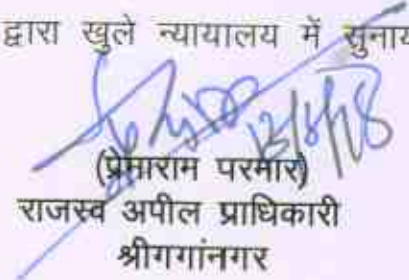 द्वारा खुले न्यायालय में सुनाय
(प्रेमाराम परमार)
राजस्व अपील प्राधिकारी
श्रीगगांनगर